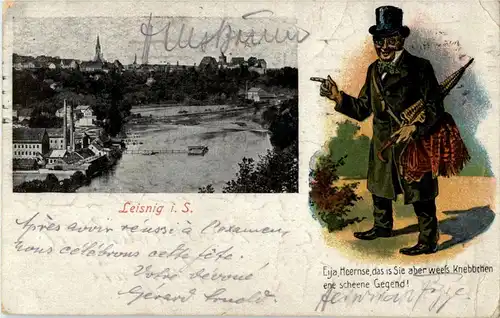 Leisnig i. S.
Eija, Heernse, das is Sie aber weefs Knebbchen
ene scheene Gegend!
Après avoir réussi à l'examen,
nous célébrons cette fête.
Votre dévoué
Gérard